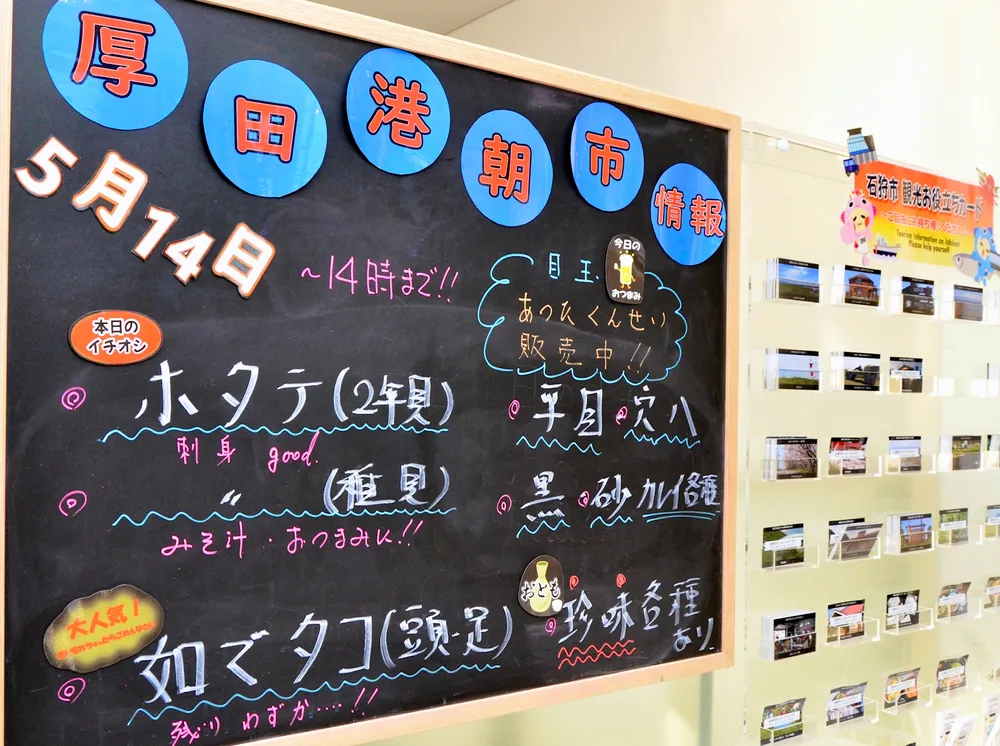 厚田港朝市情報
5月14日
～14時まで!!
目玉.
今日の
おつまみ
あつたくんせい
販売中!!
本日の
イチオシ
◎ ホタテ(2年貝)
刺身 good.
◎ 〃 (稚貝)
みそ汁・おつまみに!!
大人気!
◎ 茹でタコ(頭・足)
残り わずか…!!
◎平目◎穴八
◎黒◎砂カレイ各種
おとも
◎珍味各種
あり
石狩市 観光お役立ちカード
Tourism Information on Ishikari
Please help yourself